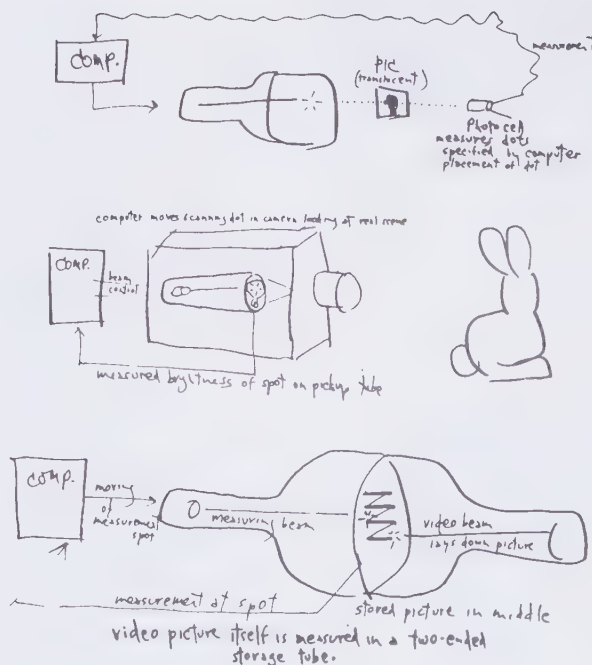 COMP.
measurement
PIC
(translucent)
Photocell
measures dots
specified by computer
placement of dot
computer moves scanning dot in camera looking at real scene
COMP.
beam
control
measured brightness of spot on pickup tube
COMP.
moving
of
measurement
spot
measuring beam
video beam
lays down picture
measurement at spot
stored picture in middle
video picture itself is measured in a two-ended
storage tube.